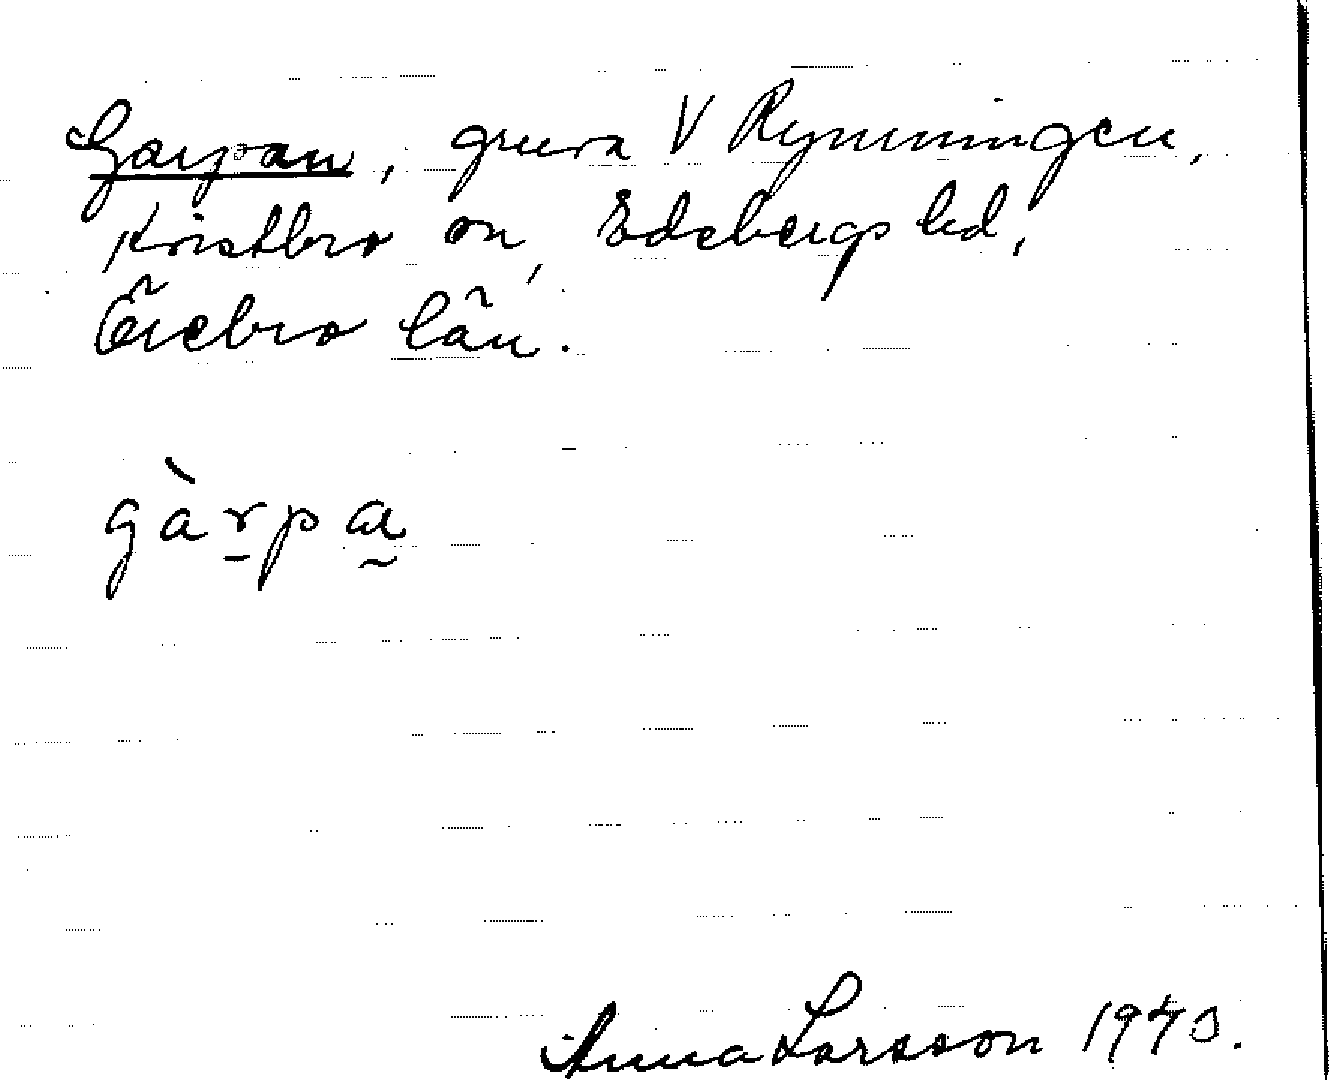 Garpan, gruva V Rymningen,
Kristbro sn, Edsbergs hd,
Örebro län.
gàrpa
Anna Larsson 1940.